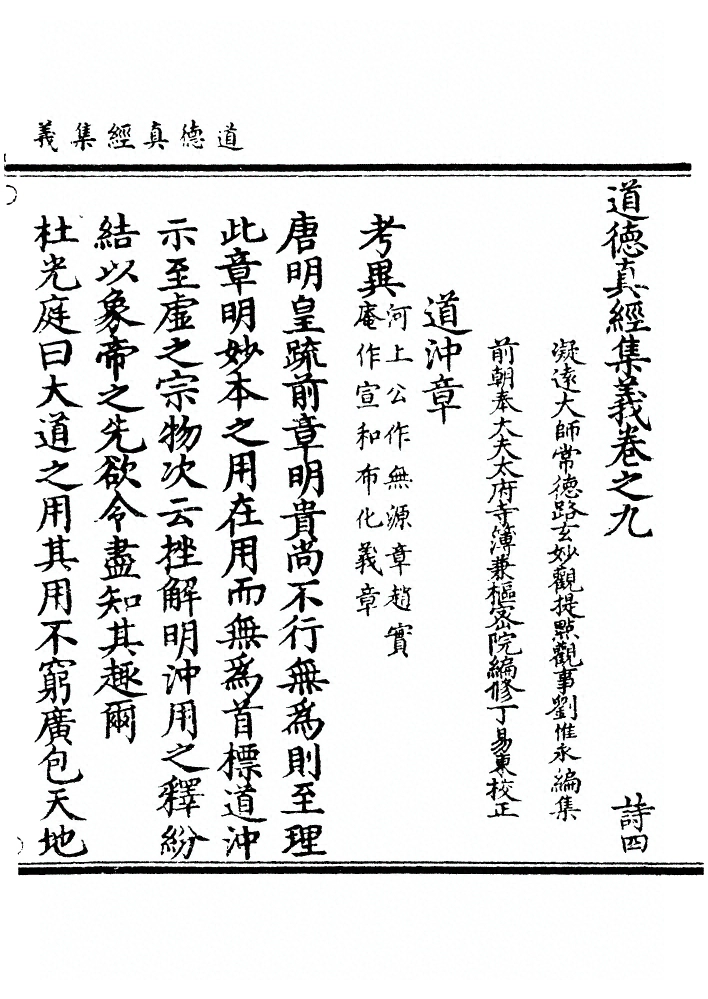 道德真經集義
道德真經集義卷之九
詩四
凝遠大師常德路玄妙觀提點觀事劉惟永編集
前朝奉大夫太府寺簿兼樞密院編修丁易東校正
道沖章
考異河上公作無源章趙實
庵作宣和布化義章
唐明皇疏前章明貴尚不行無為則至理
此章明妙本之用在用而無為首標道沖
示至虛之宗物次云挫解明沖用之釋紛
結以象帝之先欲令盡知其趣爾
杜光庭曰大道之用其用不窮廣包天地